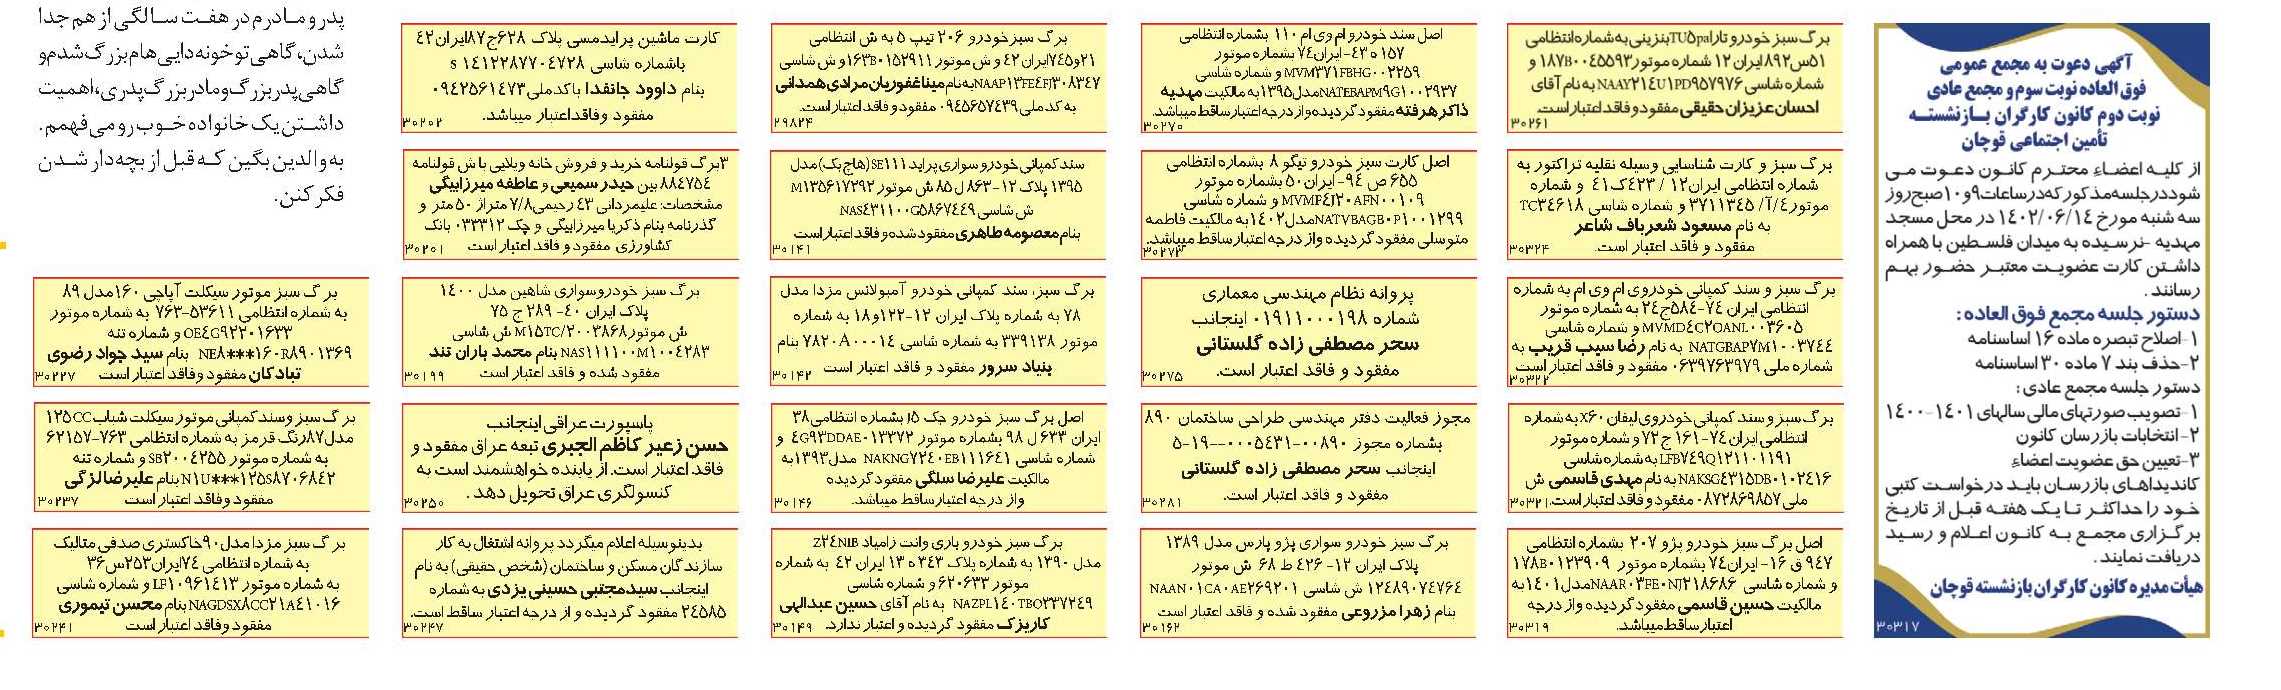 آگهی دعوت به مجمع عمومی
فوق العاده نوبت سوم و مجمع عادی
نوبت دوم کانون کارگران بازنشسته
تأمین اجتماعی قوچان
از کلیه اعضاء محترم کانون دعوت می
شود در جلسه مذکور که در ساعات ۹ و ۱۰ صبح روز
سه شنبه مورخ ۱۴۰۲/۰۶/۱۴ در محل مسجد
مهدیه -نرسیده به میدان فلسطین با همراه
داشتن کارت عضویت معتبر حضور بهم
رسانند.
دستور جلسه مجمع فوق العاده:
۱-اصلاح تبصره ماده ۱۶ اساسنامه
۲-حذف بند ۷ ماده ۳۰ اساسنامه
دستور جلسه مجمع عادی:
۱-تصویب صورتهای مالی سالهای ۱۴۰۱-۱۴۰۰
۲-انتخابات بازرسان کانون
۳-تعیین حق عضویت اعضاء
کاندیداهای بازرسان باید درخواست کتبی
خود را حداکثر تا یک هفته قبل از تاریخ
برگزاری مجمع به کانون اعلام و رسید
دریافت نمایند.
هیأت مدیره کانون کارگران بازنشسته قوچان
۳۰۳۱۷
برگ سبز خودرو تارا TU5pa بنزینی به شماره انتظامی
۵۱س۸۹۲ایران ۱۲ شماره موتور۱۸۷B۰۰۴۵۵۹۳ و
شماره شاسی NAAY۲۱۴U۱PD۹۵۷۹۷۶ به نام آقای
احسان عزیزان حقیقی مفقود و فاقد اعتبار است.
۳۰۲۶۱
برگ سبز و کارت شناسایی وسیله نقلیه تراکتور به
شماره انتظامی ایران۱۲ / ۴۲۳ک۴۱ و شماره
موتور۴/آ/ ۳۷۱۱۳۴۵ و شماره شاسی TC۳۴۶۱۸
به نام مسعود شعرباف شاعر
مفقود و فاقد اعتبار است.
۳۰۳۲۴
برگ سبز و سند کمپانی خودروی ام وی ام به شماره
انتظامی ایران ۷۴-۵۸۴ج۲۴ به شماره موتور
MVMD۴C۲OANL۰۰۳۶۰۵ و شماره شاسی
NATGBAP۷M۱۰۰۳۷۴۴ به نام رضا سیب قریب به
شماره ملی ۰۶۳۹۷۶۳۹۷۹ مفقود و فاقد اعتبار است
۳۰۳۲۲
برگ سبز و سند کمپانی خودروی لیفان X۶۰ به شماره
انتظامی ایران۷۴-۱۶۱ ج ۷۲ و شماره موتور
LFB۷۴۹Q۱۲۱۱۰۱۱۹۱ به شماره شاسی
NAKSG۴۳۱۵DB۰۱۰۲۴۱۶ به نام مهدی قاسمی ش
ملی ۰۸۷۲۸۶۹۸۵۷ مفقود و فاقد اعتبار است.
۳۰۳۲۱
اصل برگ سبز خودرو پژو ۲۰۷ بشماره انتظامی
۹۴۷ ق ۱۶- ایران۷۴ بشماره موتور ۱۷۸B۰۱۲۳۹۰۹
و شماره شاسی NAAR۰۳FE۰NJ۲۱۸۶۸۶ مدل۱۴۰۱ به
مالکیت حسین قاسمی مفقود گردیده و از درجه
اعتبار ساقط میباشد.
۳۰۳۱۹
اصل سند خودرو ام وی ام ۱۱۰ بشماره انتظامی
۱۵۷ ه ۴۳- ایران۷۴ بشماره موتور
MVM۳۷۱FBHG۰۰۲۲۵۹ و شماره شاسی
NATEBAPM۹G۱۰۰۲۹۳۷ مدل۱۳۹۵ به مالکیت مهدیه
ذاکر هرفته مفقود گردیده و از درجه اعتبار ساقط میباشد.
۳۰۲۷۰
اصل کارت سبز خودرو تیگو ۸ بشماره انتظامی
۶۵۵ ص ۹۴- ایران۵۰ بشماره موتور
MVMF۴J۲۰AFN۰۰۱۰۹ و شماره شاسی
NATVBAGB۰P۱۰۰۱۲۹۹ مدل۱۴۰۲ به مالکیت فاطمه
متوسلی مفقود گردیده و از درجه اعتبار ساقط میباشد.
۳۰۲۷۳
پروانه نظام مهندسی معماری
شماره ۰۱۹۱۱۰۰۰۱۹۸ اینجانب
سحر مصطفی زاده گلستانی
مفقود و فاقد اعتبار است.
۳۰۲۷۵
مجوز فعالیت دفتر مهندسی طراحی ساختمان ۸۹۰
بشماره مجوز ۰۰۸۹۰-۰۰۰۵۴۳۱--۱۹-۵
اینجانب سحر مصطفی زاده گلستانی
مفقود و فاقد اعتبار است.
۳۰۲۸۱
برگ سبز خودرو سواری پژو پارس مدل ۱۳۸۹
پلاک ایران ۱۲- ۴۲۶ ط ۶۸ ش موتور
۱۲۴۸۹۰۷۴۷۶۴ ش شاسی NAAN۰۱CA۰AE۲۶۹۲۰۱
بنام زهرا مزروعی مفقود شده و فاقد اعتبار است
۳۰۱۶۲
برگ سبز خودرو ۲۰۶ تیپ ۵ به ش انتظامی
۲۱و۷۴۵ایران ۴۲ و ش موتور ۱۶۳B۰۱۵۲۹۱۱ و ش شاسی
NAAP۱۳FE۴FJ۳۰۸۳۴۷ به نام مینا غفوریان مرادی همدانی
به کدملی ۰۹۴۵۶۵۷۴۳۹ مفقود و فاقد اعتبار است.
۲۹۸۲۴
سند کمپانی خودرو سواری پراید SE۱۱۱ (هاچ بک) مدل
۱۳۹۵ پلاک ۱۲- ۸۶۳ ل ۸۵ ش موتور M۱۳۵۶۱۷۲۹۲
ش شاسی NAS۴۳۱۱۰۰G۵۸۶۷۴۴۹
بنام معصومه طاهری مفقود شده و فاقد اعتبار است
۳۰۱۴۱
برگ سبز، سند کمپانی خودرو آمبولانس مزدا مدل
۷۸ به شماره پلاک ایران ۱۲-۱۲۲و۱۸ به شماره
موتور ۳۳۹۱۳۸ به شماره شاسی ۷۸۲۰A۰۰۰۱۴ بنام
بنیاد سرور مفقود و فاقد اعتبار است
۳۰۱۴۲
اصل برگ سبز خودرو جک J۵ بشماره انتظامی۳۸
ایران ۶۲۳ ل ۹۸ بشماره موتور ۴G۹۳DDAE۰۱۳۲۷۲ و
شماره شاسی NAKNG۷۲۴۰EB۱۱۱۶۴۱ مدل۱۳۹۳ به
مالکیت علیرضا سلگی مفقود گردیده
و از درجه اعتبار ساقط میباشد.
۳۰۱۴۶
برگ سبز خودرو باری وانت زامیاد Z۲۴NIB
مدل ۱۳۹۰ به شماره پلاک ۲۴۳ ه ۱۳ ایران ۴۲ به شماره
موتور ۶۲۰۶۳۳ و شماره شاسی
NAZPL۱۴۰TBO۲۳۷۲۴۹ به نام آقای حسین عبدالهی
کاریزک مفقود گردیده و اعتبار ندارد.
۳۰۱۴۹
کارت ماشین پراید مسی پلاک ۶۲۸ج۸۷ایران۴۲
باشماره شاسی S ۱۴۱۲۲۸۷۷۰۴۷۲۸
بنام داوود جانفدا با کد ملی ۰۹۴۲۵۶۱۴۷۳
مفقود و فاقد اعتبار میباشد.
۳۰۲۰۲
۳برگ قولنامه خرید و فروش خانه ویلایی با ش قولنامه
۸۸۴۷۵۴ بین حیدر سمیعی و عاطفه میرزابیگی
مشخصات: علیمردانی ۴۳ رحیمی۷/۸ متراژ ۵۰ متر و
گذرنامه بنام ذکریا میرزابیگی و چک ۰۳۳۳۱۲ بانک
کشاورزی مفقود و فاقد اعتبار است
۳۰۲۰۱
برگ سبز خودروسواری شاهین مدل ۱۴۰۰
پلاک ایران ۴۰- ۲۸۹ ج ۷۵
ش موتورM۱۵TC/۲۰۰۳۸۶۸ ش شاسی
NAS۱۱۱۱۰۰M۱۰۰۴۲۸۳ بنام محمد باران تند
مفقود شده و فاقد اعتبار است
۳۰۱۹۹
پاسپورت عراقی اینجانب
حسن زعیر کاظم الجبری تبعه عراق مفقود و
فاقد اعتبار است. از یابنده خواهشمند است به
کنسولگری عراق تحویل دهد.
۳۰۲۵۰
بدینوسیله اعلام میگردد پروانه اشتغال به کار
سازندگان مسکن و ساختمان (شخص حقیقی) به نام
اینجانب سیدمجتبی حسینی یزدی به شماره
۲۴۵۸۵ مفقود گردیده و از درجه اعتبار ساقط است.
۳۰۲۴۷
پدر و مادرم در هفت سالگی از هم جدا
شدن، گاهی تو خونه دایی هام بزرگ شدم و
گاهی پدربزرگ و مادربزرگ پدری، اهمیت
داشتن یک خانواده خوب رو می فهمم.
به والدین بگین که قبل از بچه دار شدن
فکر کنن.
برگ سبز موتور سیکلت آپاچی ۱۶۰مدل ۸۹
به شماره انتظامی ۵۳۶۱۱-۷۶۳ به شماره موتور
OE۴G۹۲۲۰۱۶۳۳ و شماره تنه
NE۸***۱۶۰R۸۹۰۱۳۶۹ بنام سید جواد رضوی
تبادکان مفقود و فاقد اعتبار است
۳۰۲۲۷
برگ سبز و سند کمپانی موتور سیکلت شباب ۱۲۵CC
مدل۸۷رنگ قرمز به شماره انتظامی ۷۶۳-۶۲۱۵۷
به شماره موتور SB۲۰۰۴۲۵۵ و شماره تنه
N۱U***۱۲۵S۸۷۰۶۸۴۲ بنام علیرضا لزگی
مفقود و فاقد اعتبار است
۳۰۲۳۷
برگ سبز مزدا مدل۹۰خاکستری صدفی متالیک
به شماره انتظامی ۷۴ایران۲۵۳س۳۶
به شماره موتور LF۱۰۹۶۱۴۱۳ و شماره شاسی
NAGDSX۸CC۲۱A۴۱۰۱۶ بنام محسن تیموری
مفقود و فاقد اعتبار است
۳۰۲۴۱